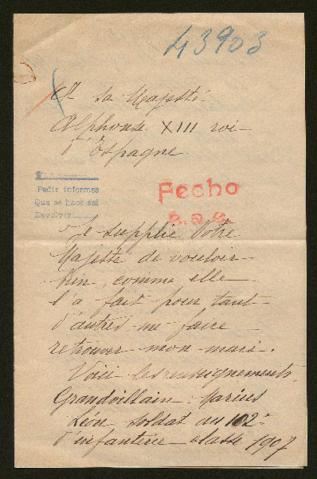 43903
A sa Majesté
Alphonse XIII roi
d'Espagne
Pedir informes
Que se haga así
Fecho
Je supplie Votre
Majesté de vouloir
bien, comme elle
l'a fait pour tant
d'autres me faire
retrouver mon mari.
Voici les renseignements
Grandvillain Marius
Léon soldat au 102e
d'infanterie classe 1907